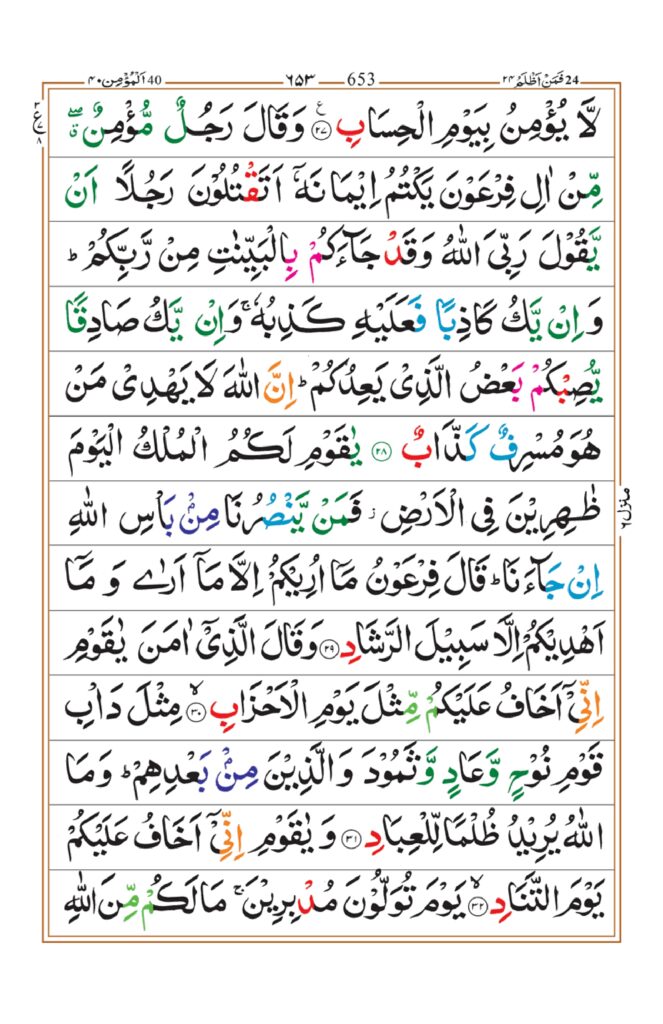 24 فَمَنْ اَظْلَمُ ۲۴ 653 ٦٥٣ 40 اَلْمُؤْمِن ۴۰
لَّا يُؤْمِنُ بِيَوْمِ الْحِسَابِ ﴿۲۷﴾ وَقَالَ رَجُلٌ مُّؤْمِنٌ
مِّنْ اٰلِ فِرْعَوْنَ يَكْتُمُ اِيْمَانَهٗۤ اَتَقْتُلُوْنَ رَجُلًا اَنْ
يَّقُوْلَ رَبِّىَ اللّٰهُ وَقَدْ جَآءَكُمْ بِالْبَيِّنٰتِ مِنْ رَّبِّكُمْ ؕ
وَاِنْ يَّكُ كَاذِبًا فَعَلَيْهِ كَذِبُهٗ ۚ وَاِنْ يَّكُ صَادِقًا
يُّصِبْكُمْ بَعْضُ الَّذِىْ يَعِدُكُمْ ؕ اِنَّ اللّٰهَ لَا يَهْدِىْ مَنْ
هُوَ مُسْرِفٌ كَذَّابٌ ﴿۲۸﴾ يٰقَوْمِ لَكُمُ الْمُلْكُ الْيَوْمَ
ظٰهِرِيْنَ فِى الْاَرْضِ ز فَمَنْ يَّنْصُرُنَا مِنْۢ بَاْسِ اللّٰهِ
اِنْ جَآءَنَا ؕ قَالَ فِرْعَوْنُ مَاۤ اُرِيْكُمْ اِلَّا مَاۤ اَرٰى وَ مَاۤ
اَهْدِيْكُمْ اِلَّا سَبِيْلَ الرَّشَادِ ﴿۲۹﴾ وَقَالَ الَّذِىْۤ اٰمَنَ يٰقَوْمِ
اِنِّىْۤ اَخَافُ عَلَيْكُمْ مِّثْلَ يَوْمِ الْاَحْزَابِ ۙ ﴿۳۰﴾ مِثْلَ دَاْبِ
قَوْمِ نُوْحٍ وَّعَادٍ وَّثَمُوْدَ وَالَّذِيْنَ مِنْۢ بَعْدِهِمْ ؕ وَمَا
اللّٰهُ يُرِيْدُ ظُلْمًا لِّلْعِبَادِ ﴿۳۱﴾ وَ يٰقَوْمِ اِنِّىْۤ اَخَافُ عَلَيْكُمْ
يَوْمَ التَّنَادِ ۙ ﴿۳۲﴾ يَوْمَ تُوَلُّوْنَ مُدْبِرِيْنَ ۚ مَا لَكُمْ مِّنَ اللّٰهِ
منزل ٦